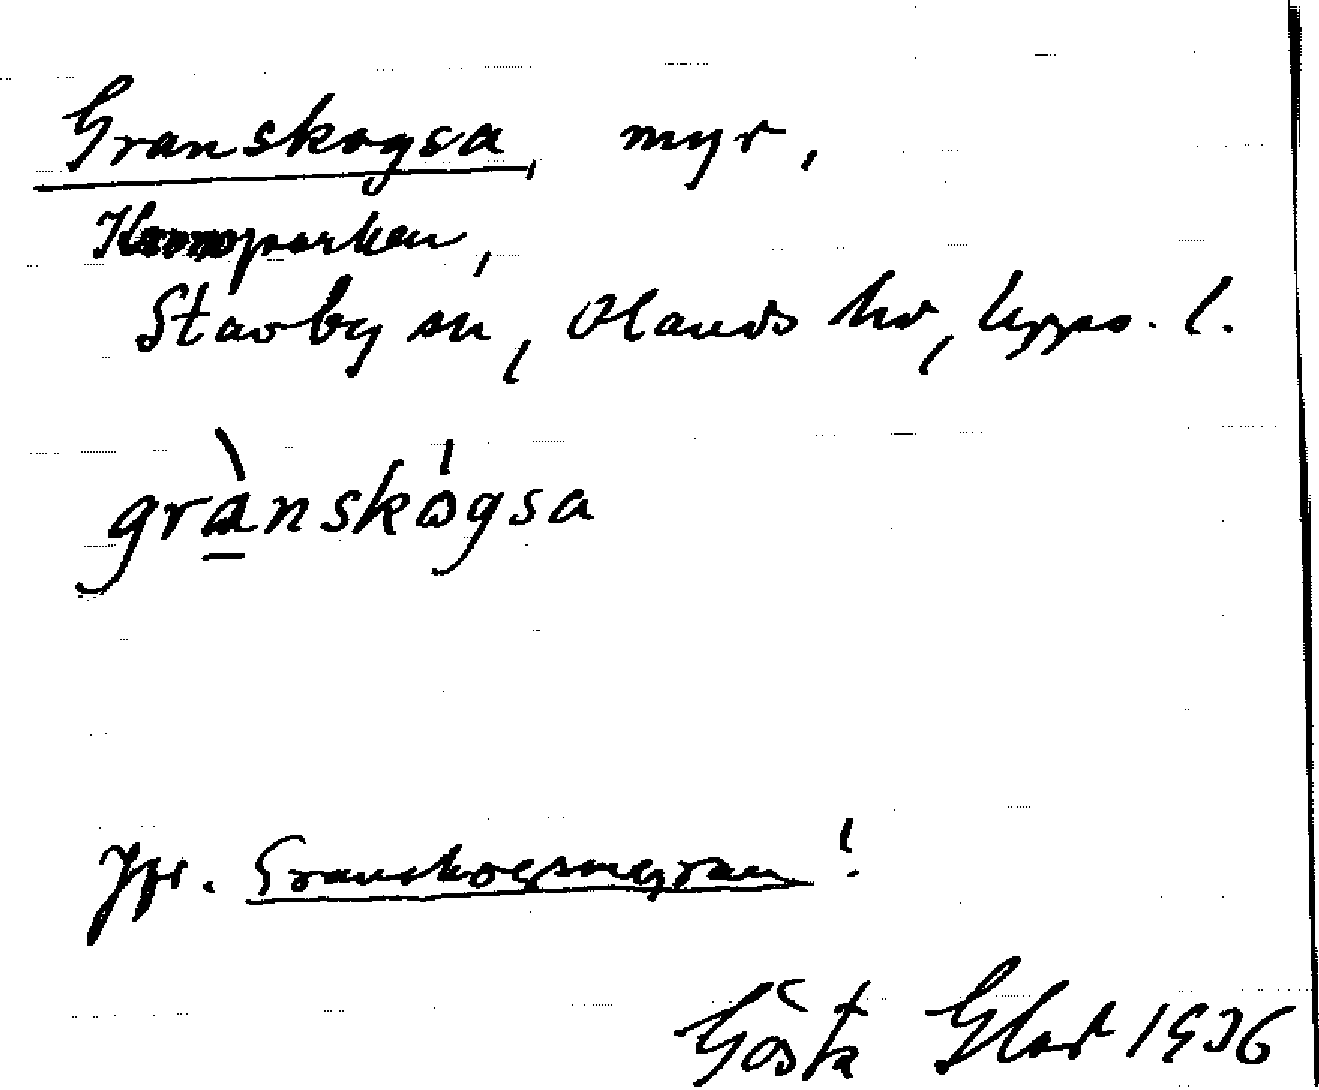 Granskogsa, myr,
Kronoparken,
Stavby sn, Olands hd, Upps. l.
grànskógsa
Jfr. Granskogsmyran!
Gösta Glad 1936